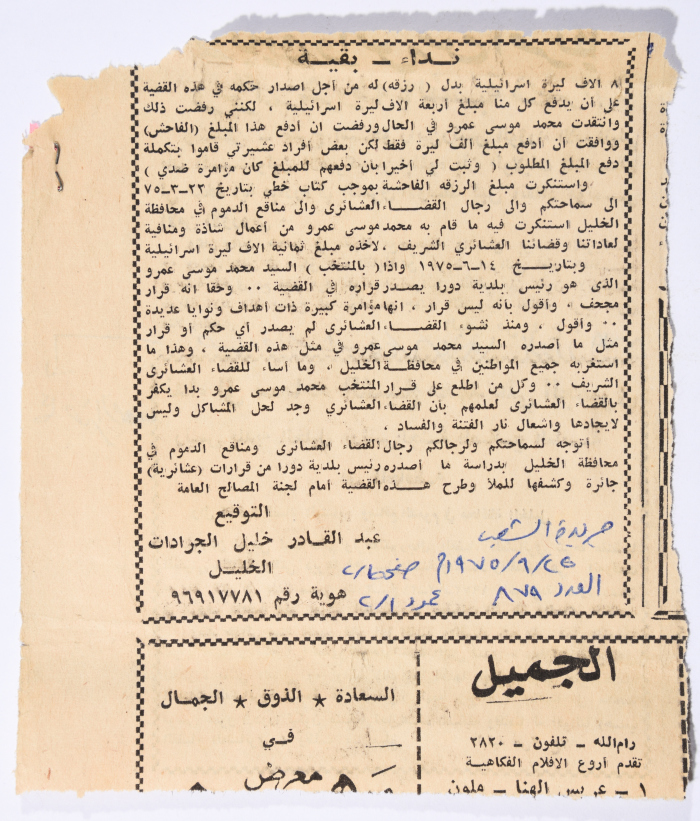 نداء - بقية
٨ الاف ليرة اسرائيلية بدل ( رزقه) له من أجل اصدار حكمه في هذه القضية
على أن يدفع كل منا مبلغ أربعة الاف ليرة اسرائيلية ، لكنني رفضت ذلك
وانتقدت محمد موسى عمرو في الحال ورفضت ان أدفع هذا المبلغ (الفاحش)
ووافقت أن أدفع مبلغ ألف ليرة فقط لكن بعض أفراد عشيرتي قاموا بتكملة
دفع المبلغ المطلوب ( وثبت لي أخيرا بان دفعهم للمبلغ كان مؤامرة ضدي )
واستنكرت مبلغ الرزقه الفاحشة بموجب كتاب خطي بتاريخ ٢٣-٣-٧٥
الى سماحتكم والى رجال القضاء العشائرى والى مناقع الدموم في محافظة
الخليل استنكرت فيه ما قام به محمد موسى عمرو من أعمال شاذة ومنافية
لعاداتنا وقضائنا العشائري الشريف ، لاخذه مبلغ ثمانية الاف ليرة اسرائيلية
وبتاريخ ١٤-٦-١٩٧٥ واذا ( بالمنتخب ) السيد محمد موسى عمرو
الذى هو رئيس بلدية دورا يصدر قراره في القضية .. وحقا انه قرار
مجحف ، وأقول بأنه ليس قرار ، انها مؤامرة كبيرة ذات أهداف ونوايا عديدة
.. وأقول ، ومنذ نشوء القضاء العشائرى لم يصدر أي حكم أو قرار
مثل ما أصدره السيد محمد موسى عمرو في مثل هذه القضية ، وهذا ما
استغربه جميع المواطنين في محافظة الخليل ، وما أساء للقضاء العشائرى
الشريف .. وكل من اطلع على قرار المنتخب محمد موسى عمرو بدا يكفر
بالقضاء العشائرى لعلمهم بأن القضاء العشائري وجد لحل المشاكل وليس
لايجادها واشعال نار الفتنة والفساد .
أتوجه لسماحتكم ولرجالكم رجال القضاء العشائرى ومناقع الدموم في
محافظة الخليل بدراسة ما أصدره رئيس بلدية دورا من قرارات (عشائرية)
جائرة وكشفها للملأ وطرح هذه القضية أمام لجنة المصالح العامة
التوقيع
عبد القادر خليل الجرادات
الخليل
هوية رقم ٩٦٩١٧٧٨١
جريدة الشعب
١٩٧٥/٦/٢٥م صفحة/٢
العدد ٨٧٩ عمود ٢/١
الجميل
رام الله - تلفون - ٣٨٢٠
تقدم أروع الافلام الفكاهية
١ - عريس الهنا - ملون
السعادة ★ الذوق ★ الجمال
في
معرض